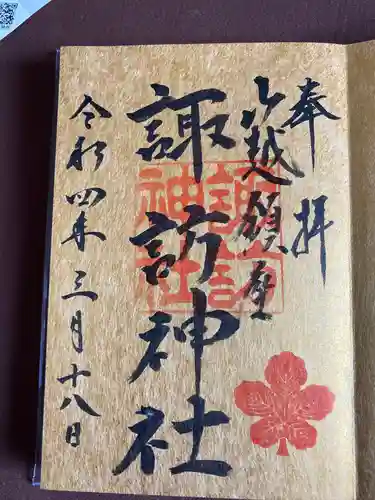 奉拝
山越願座
諏訪神社
諏訪神社
令和四年三月十八日